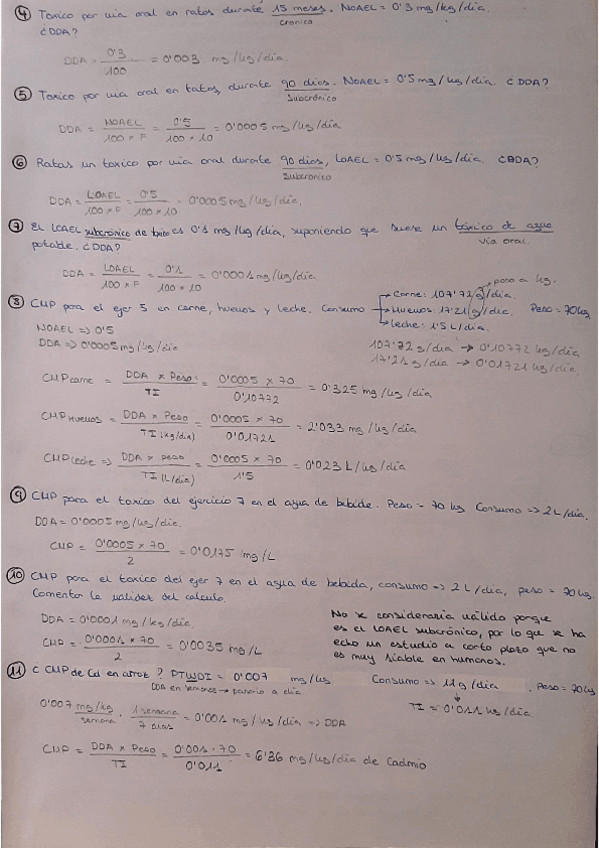 ④ Toxico por via oral en ratas durante 15 meses. NOAEL = 0'3 mg/kg/dia.
cronico
¿DDA?
DDA = 0'3 / 100 = 0'003 mg/kg/dia
⑤ Toxico por via oral en ratas, durante 90 dias. NOAEL = 0'5 mg/kg/dia. ¿DDA?
Subcrónico
DDA = NOAEL / 100 × F = 0'5 / 100 × 10 = 0'0005 mg/kg/dia
⑥ Ratas un toxico por via oral durante 90 dias, LOAEL = 0'5 mg/kg/dia. ¿DDA?
Subcronico
DDA = LOAEL / 100 × F = 0'5 / 100 × 10 = 0'0005 mg/kg/dia.
⑦ El LOAEL subcrónico de toxico es 0'1 mg/kg/dia, suponiendo que fuese un tóxico de agua
potable. ¿DDA?
via oral.
DDA = LOAEL / 100 × F = 0'1 / 100 × 10 = 0'0001 mg/kg/dia
⑧ CMP para el ejer 5 en carne, huevos y leche. Consumo
→ Carne: 107'72 g/dia.
→ paso a kg.
→ Huevos: 17'21 g/dia. Peso = 70 kg
→ Leche: 1'5 L/dia.
NOAEL => 0'5
DDA => 0'0005 mg/kg/dia
107'72 g/dia → 0'10772 kg/dia
17'21 g/dia → 0'01721 kg/dia.
CMP carne = DDA × Peso / TI = 0'0005 × 70 / 0'10772 = 0'325 mg/kg/dia
CMP Huevos = DDA × Peso / TI (kg/dia) = 0'0005 × 70 / 0'01721 = 2'033 mg/kg/dia
CMP Leche => DDA × peso / TI (L/dia) = 0'0005 × 70 / 1'5 = 0'023 L/kg/dia
⑨ CMP para el toxico del ejercicio 7 en el agua de bebida. Peso = 70 kg Consumo => 2L/dia.
DDA = 0'0005 mg/kg/dia.
CMP = 0'0005 × 70 / 2 = 0'0175 mg/L
⑩ CMP para el toxico del ejer 7 en el agua de bebida, consumo => 2 L/dia, peso = 70 kg.
Comentar la validez del calculo.
DDA = 0'0001 mg/kg/dia.
CMP = 0'0001 × 70 / 2 = 0'0035 mg/L
No se consideraria válido porque
es el LOAEL subcrónico, por lo que se ha
echo un estudio a corto plazo que no
es muy fiable en humanos.
⑪ ¿ CMP de Cd en arroz ? PTWDI = 0'007 mg/kg Consumo => 11g/dia. Peso = 70 kg
DDA en semanas → pasarlo a dia
TI = 0'011 kg/dia
0'007 mg/kg / semana · 1 semana / 7 dias = 0'001 mg/kg/dia => DDA
CMP = DDA × Peso / TI = 0'001 · 70 / 0'011 = 6'36 mg/kg/dia de Cadmio